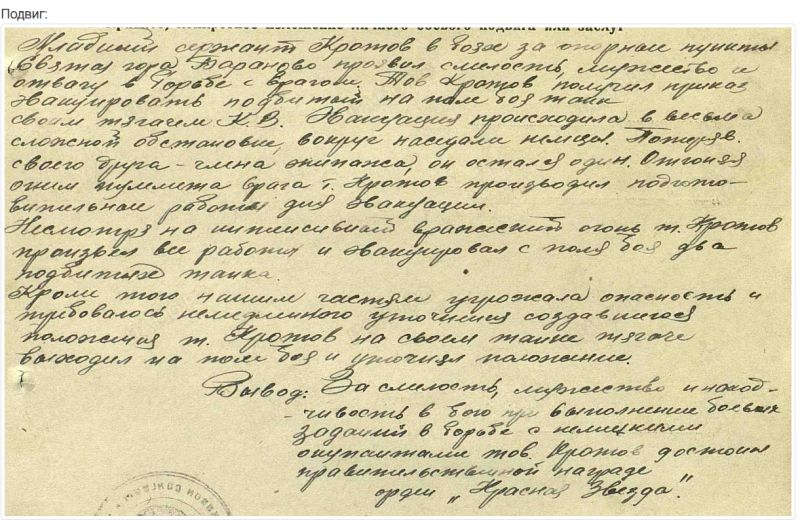 Подвиг:
конкретное изложение личного боевого подвига или заслуг
Младший сержант Кротов в боях за опорные пункты
вблизи города Бараново проявил смелость, мужество и
отвагу в борьбе с врагом. Тов Кротов получил приказ
эвакуировать подбитый на поле боя танк
своим тягачем К.В. Эвакуация происходила в весьма
сложной обстановке, вокруг наседали немцы. Потеряв
своего друга - члена экипажа, он остался один. Отгоняя
огнем пулемета врага т. Кротов производил подгото-
вительные работы для эвакуации.
Несмотря на интенсивный вражеский огонь т. Кротов
произвел все работы и эвакуировал с поля боя два
подбитых танка.
Кроме того нашим частям угрожала опасность и
требовалось немедленного уточнения создавшегося
положения т. Кротов на своем танке тягаче
выходил на поле боя и уточнял положение.
Вывод: За смелость, мужество и наход-
-чивость в бою при выполнение боевых
заданий в борьбе с немецкими
окупантами тов. Кротов достоин
правительственной награде
орден „Красная Звезда".